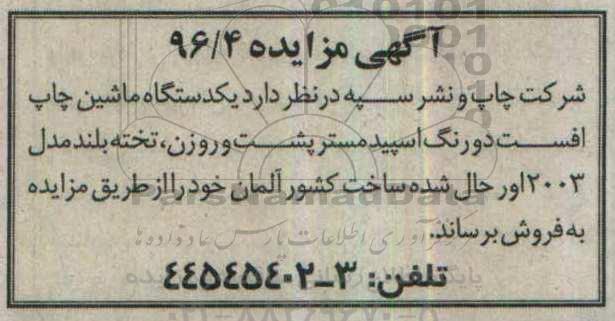 آگهی مزایده ۹۶/۴
شرکت چاپ و نشر سپه در نظر دارد یکدستگاه ماشین چاپ
افست دو رنگ اسپید مستر پشت و روزن، تخته بلند مدل
۲۰۰۳ اور حال شده ساخت کشور آلمان خود را از طریق مزایده
به فروش برساند.
تلفن: ۳-۴۴۵۴۵۴۰۲
ParsNamadData
۰۲۱-۸۸۳۴۹۶۷۰-۵